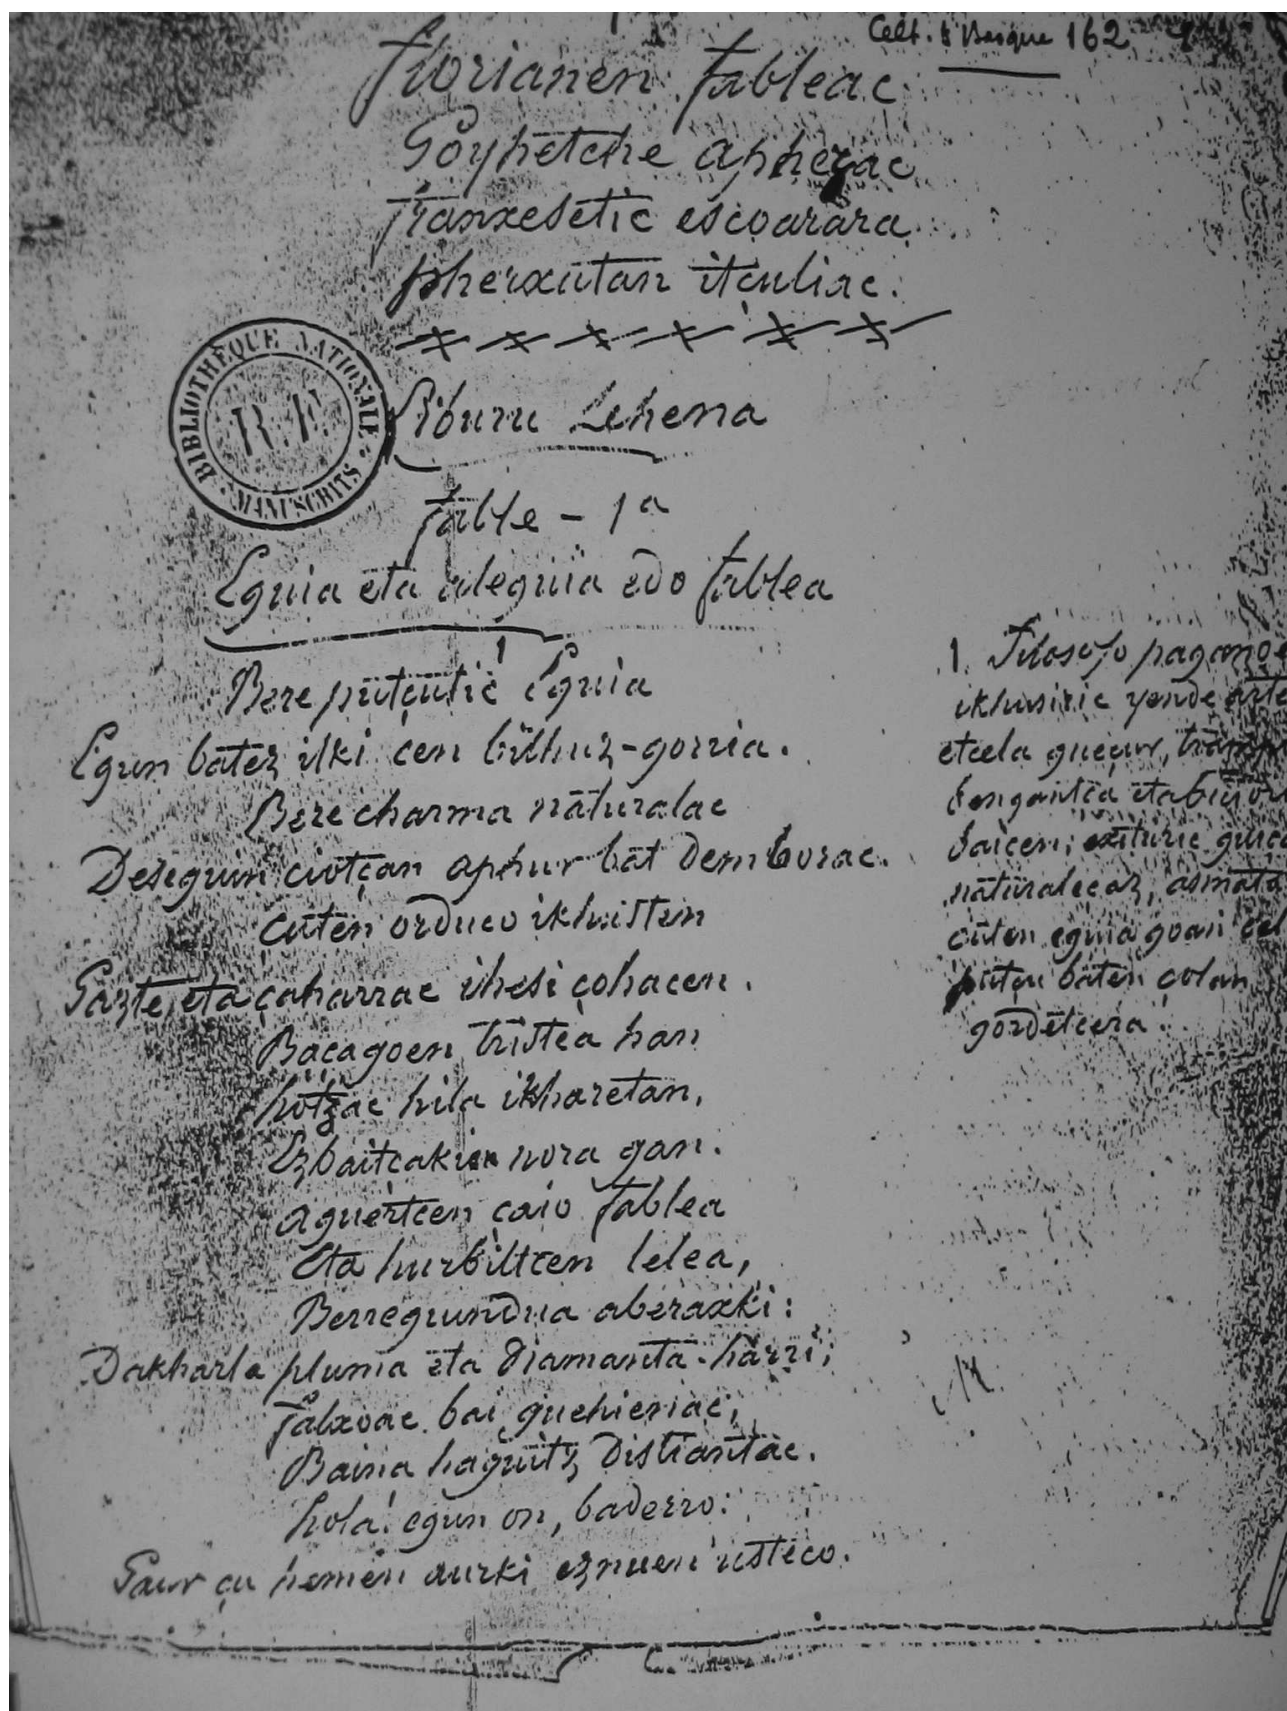 Celt. & Basque 162
Florianen Fableac
Goyhetche apheçac
franxesetic escoarara
pherxutan itçuliac.
BIBLIOTHÈQUE NATIONALE
R.F.
MANUSCRITS
Liburu Lehena
Fable - 1a
Eguia eta aleguia edo fablea
Bere putçutic 1 Eguia
Egun batez ilki cen bilhuz-gorria.
Bere charma naturalac
Deseguin ciotçan aphur bat demborac.
cuten orduco ikhusten
Gazte, eta çaharrac ihesi çohacen.
Baçagoen tristea han
hotzac hila ikharetan,
Ezbaitçakien nora gan.
aguertcen çaio fablea
Eta hurbiltcen lelea,
Berregundua aberaxki:
Dakharla pluma eta diamanta-harri;
falxoac bai guehienac;
Baina haguitz distiantac.
hola! egun on, baderro:
Gaur çu hemen aurki eznuen usteco.
1. Filosofo pagano
ikhusiric yende arte
etcela gueçur,
enganioa eta
baicen;
naturalecoz, asmatu
cuten eguia goan cel
putçu baten çolan
gordetcera.